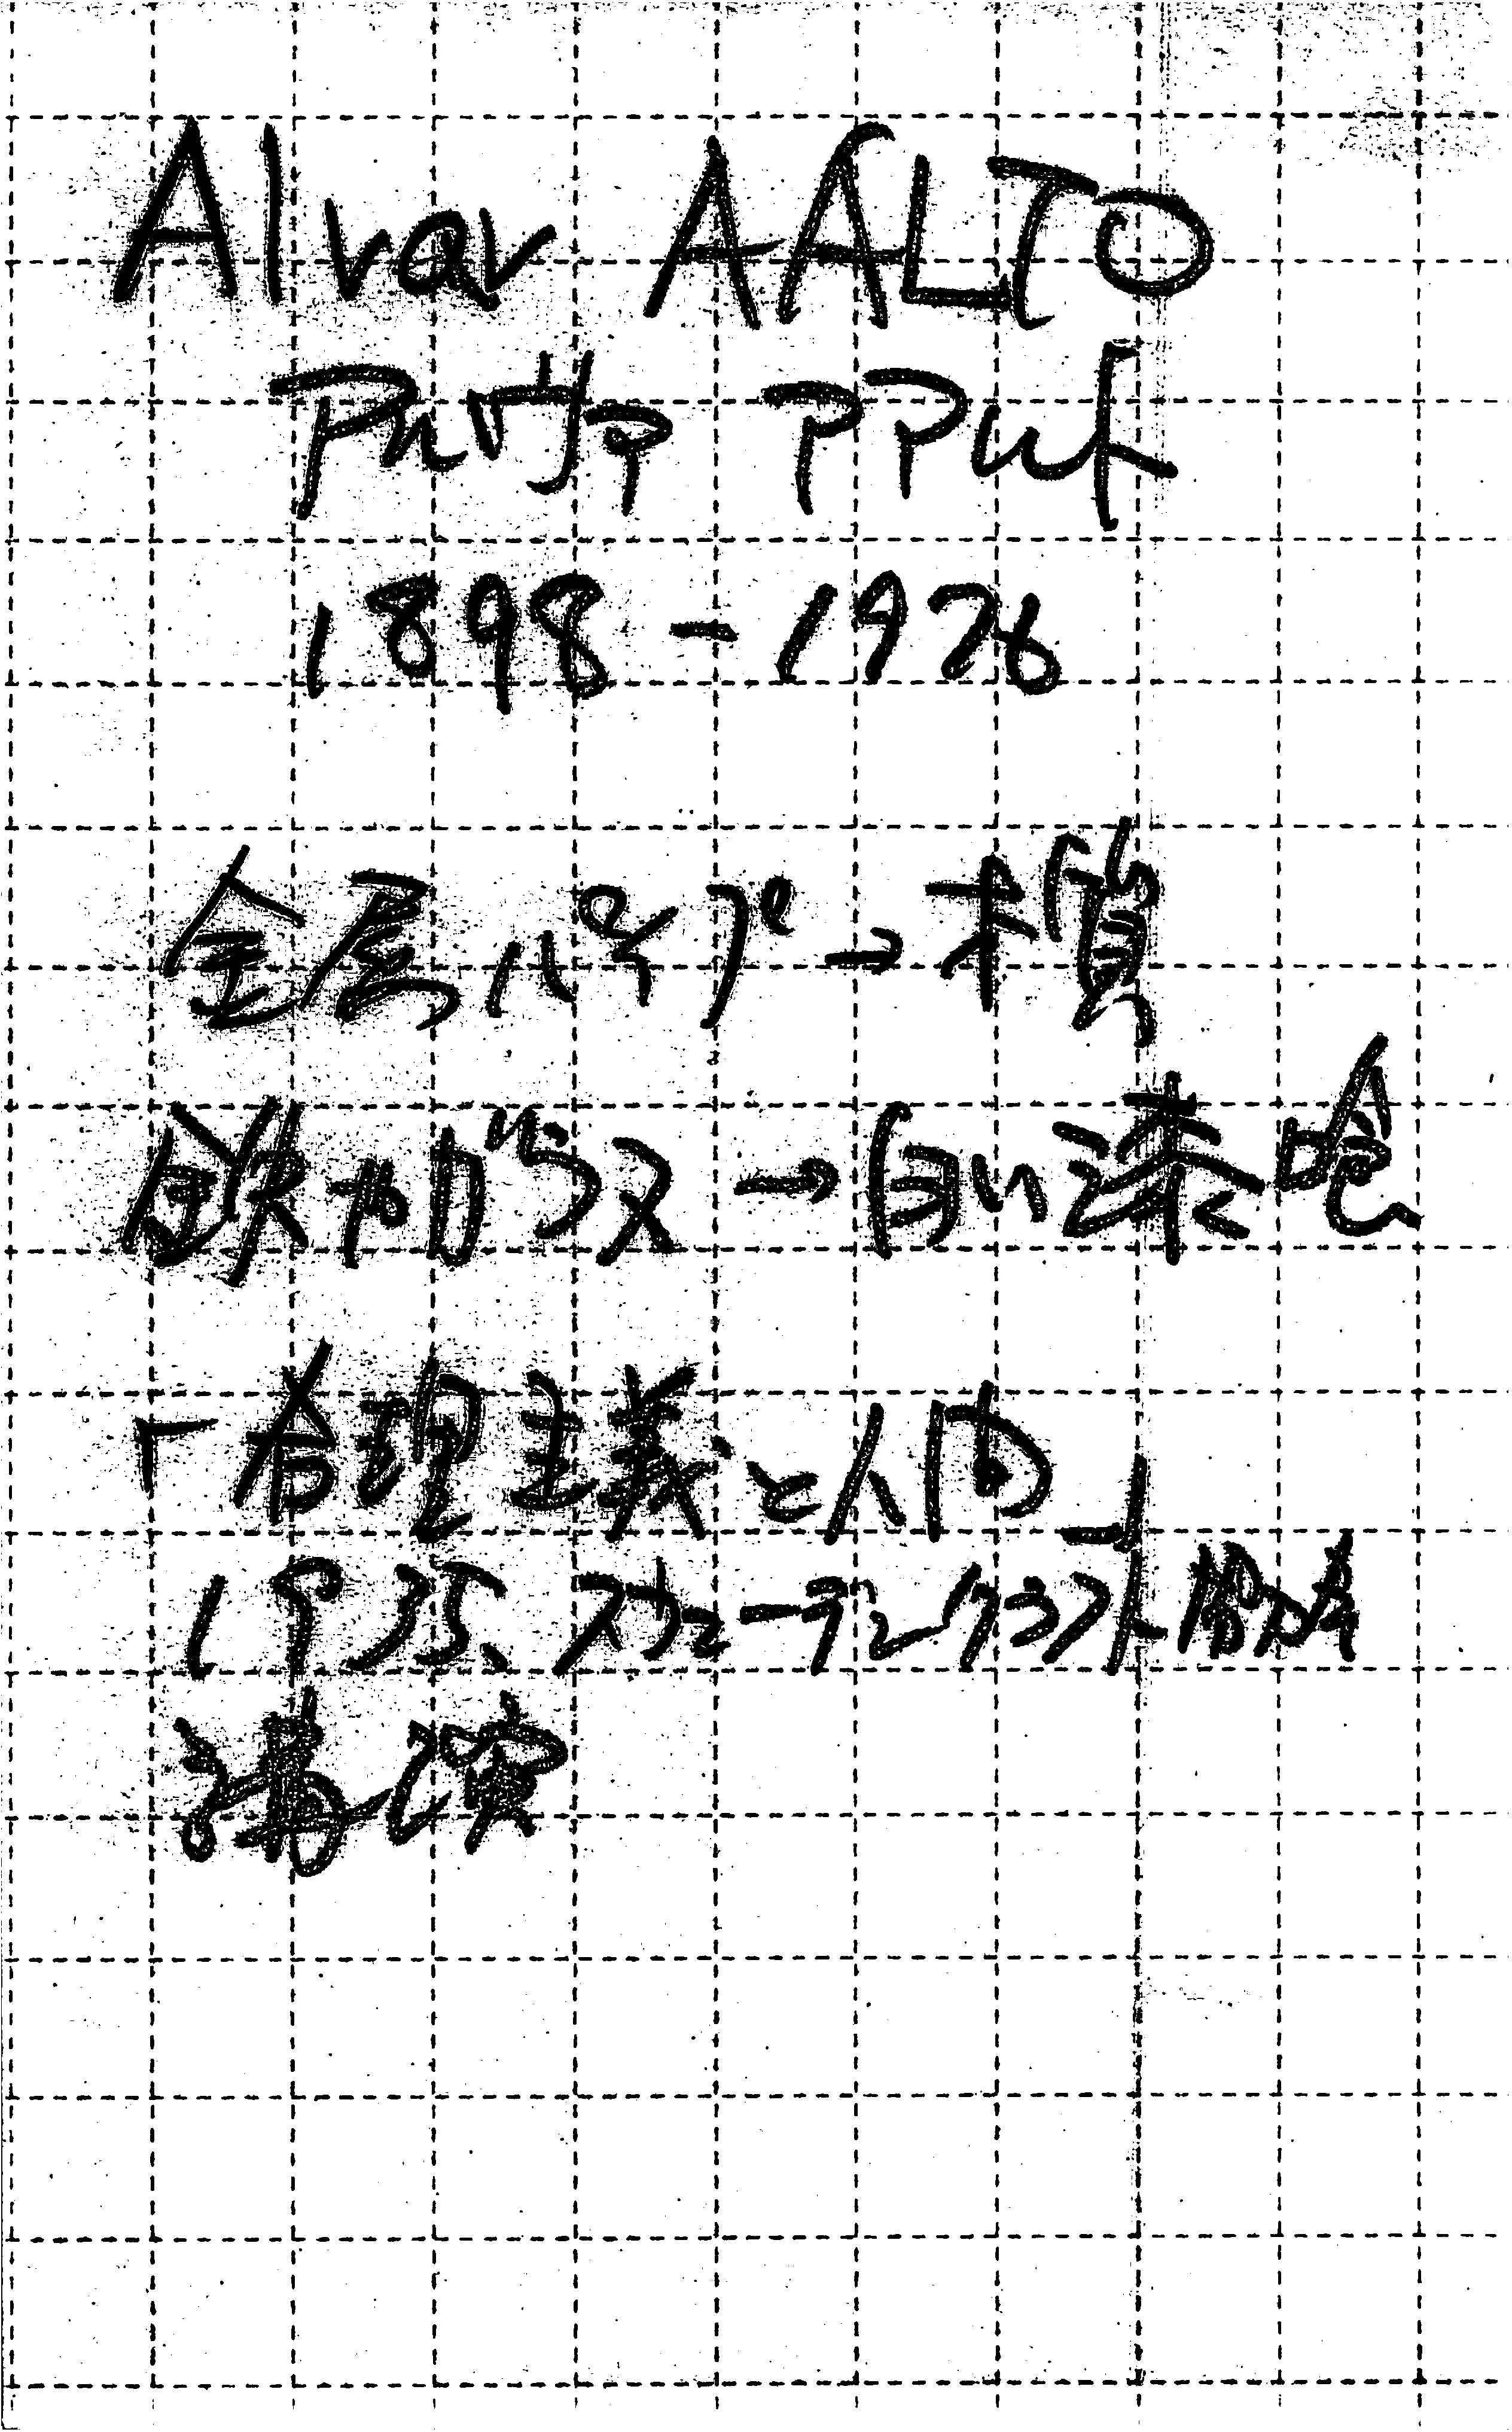 Alvar AALTO
アルヴァ アアルト
1898-1976
金属パイプ→木質
鉄やガラス→白い漆喰
「合理主義と人間」
1935、スウェーデンクラフト協会
講演